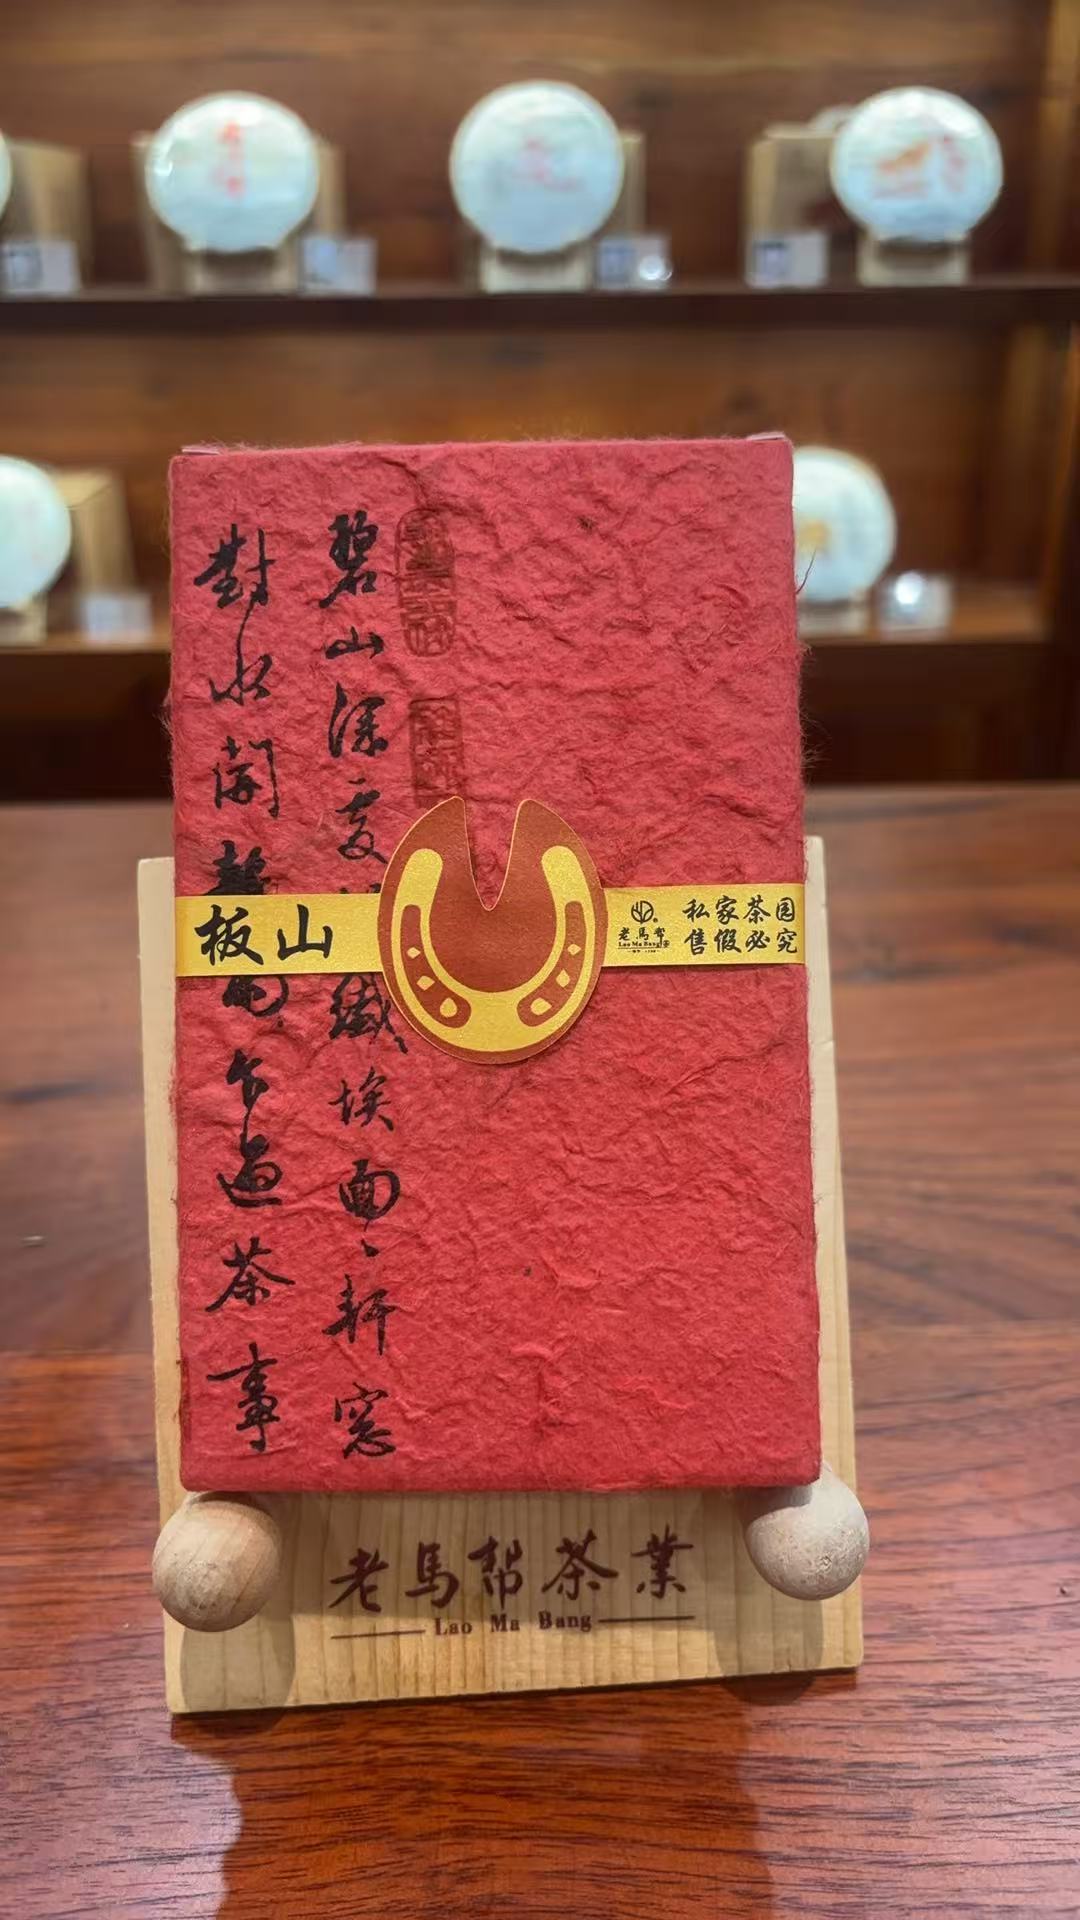 碧山深處纖埃面々軒窓
對水開乍過茶事
板山
老馬幫
Lao Ma Bang
私家茶园
售假必究
老馬幫茶業
Lao Ma Bang